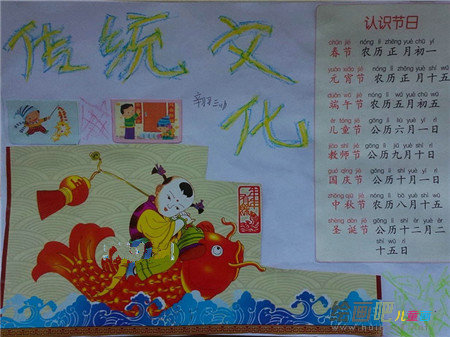 传统文化
认识节日
chūn jié nóng lì zhēng yuè chū yī
春节 农历正月初一
yuán xiāo jié nóng lì zhēng yuè shí wǔ
元宵节 农历正月十五
duān wǔ jié nóng lì wǔ yuè chū wǔ
端午节 农历五月初五
ér tóng jié gōng lì liù yuè yī rì
儿童节 公历六月一日
jiào shī jié gōng lì jiǔ yuè shí rì
教师节 公历九月十日
guó qìng jié gōng lì shí yuè yī rì
国庆节 公历十月一日
zhōng qiū jié nóng lì bā yuè shí wǔ
中秋节 农历八月十五
shèng dàn jié gōng lì shí èr yuè èr
圣诞节 公历十二月二
shí wǔ rì
十五日
绘画吧 儿童画